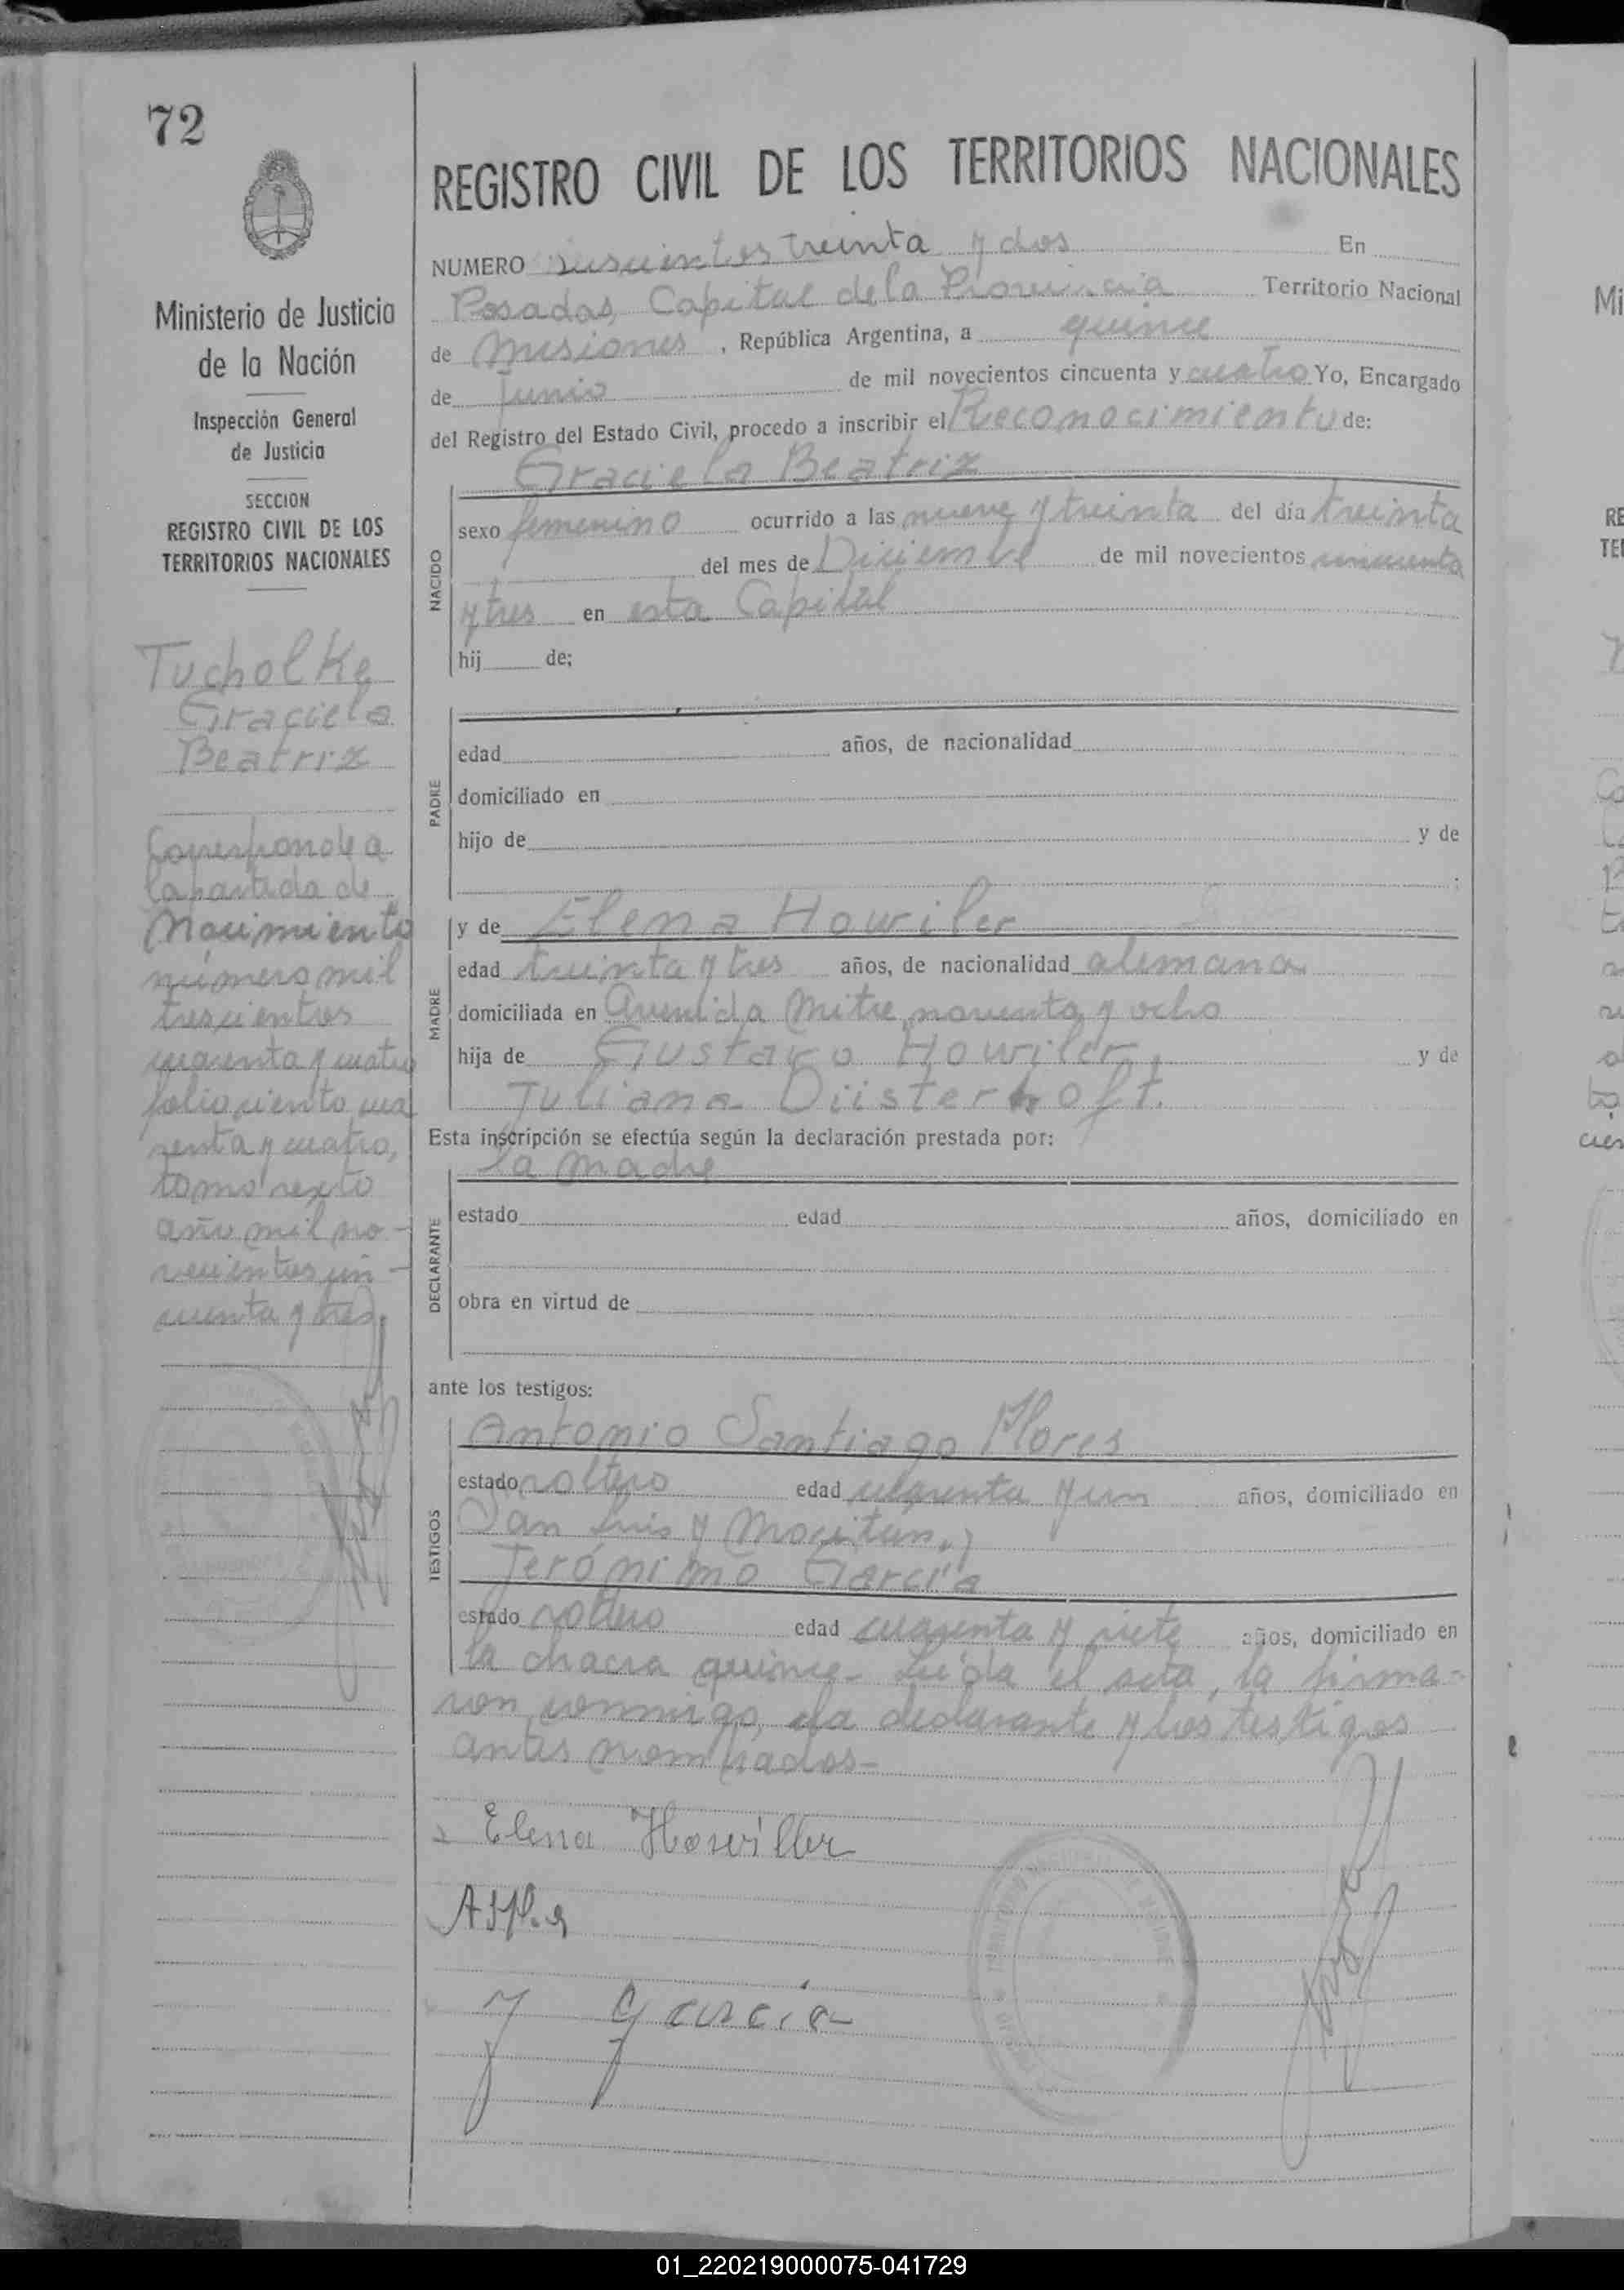 72
Ministerio de Justicia
de la Nación
Inspección General
de Justicia
SECCION
REGISTRO CIVIL DE LOS
TERRITORIOS NACIONALES
Tucholke
Graciela
Beatriz
Corresponde a
la partida de
Nacimiento
número mil
trescientos
cuarenta y cuatro
folio ciento cua
renta y cuatro,
tomo sexto
año mil no-
vecientos cin-
cuenta y tres
REGISTRO CIVIL DE LOS TERRITORIOS NACIONALES
NUMERO doscientos treinta y dos En
Posadas, Capital de la Provincia Territorio Nacional
de Misiones, República Argentina, a quince
de Junio de mil novecientos cincuenta y cuatro Yo, Encargado
del Registro del Estado Civil, procedo a inscribir el Reconocimiento de:
Graciela Beatriz
NACIDO
sexo femenino ocurrido a las nueve y treinta del día treinta
del mes de Diciembre de mil novecientos cincuenta
y tres en esta Capital
hij de;
PADRE
edad años, de nacionalidad
domiciliado en
hijo de y de
;
MADRE
y de Elena Howiler
edad treinta y tres años, de nacionalidad alemana
domiciliada en Avenida Mitre noventa y ocho
hija de Gustavo Howiler, y de
Juliana Düsterhoft.
Esta inscripción se efectúa según la declaración prestada por:
la madre
DECLARANTE
estado edad años, domiciliado en
obra en virtud de
ante los testigos:
TESTIGOS
Antonio Santiago Flores
estado soltero edad cuarenta y un años, domiciliado en
San Luis y
Jerónimo García
estado soltero edad cuarenta y siete años, domiciliado en
la chacra quince- Leída el acta, la firma-
ron conmigo, la declarante y los testigos
antes nombrados-
Elena Howiller
J García
01_220219000075-041729